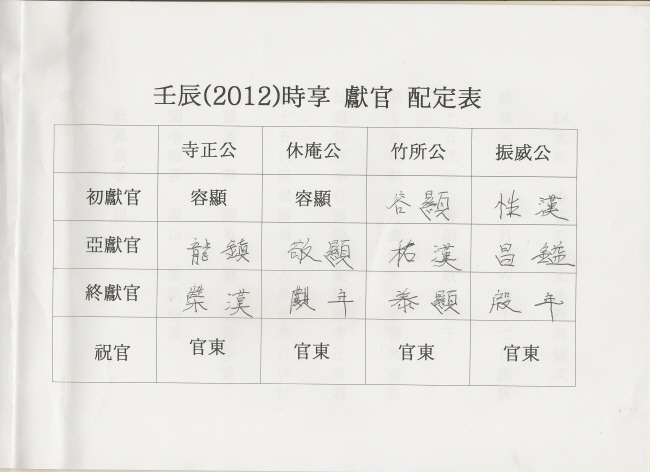 壬辰(2012)時享 獻官 配定表
寺正公 休庵公 竹所公 振威公
初獻官 容顯 容顯 容顯 性漢
亞獻官 龍鎭 敬顯 祐漢 昌鎰
終獻官 榮漢 麒年 泰顯 殷年
祝官 官東 官東 官東 官東